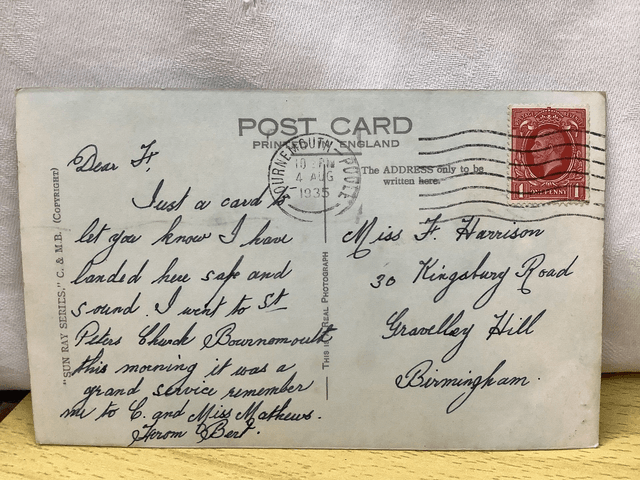 POST CARD
PRINTED IN ENGLAND
The ADDRESS only to be
written here.
BOURNEMOUTH POOLE
10 PM
4 AUG
1935
1 ONE PENNY 1
"SUN RAY SERIES." C. & M.B. (COPYRIGHT)
THIS IS A REAL PHOTOGRAPH
Dear F,
Just a card to
let you know I have
landed here safe and
sound. I went to St
Peters Church Bournemouth
this morning it was a
grand service remember
me to C. and Miss Mathews.
From Bert.
Miss F. Harrison
30 Kingsbury Road
Gravelley Hill
Birmingham.